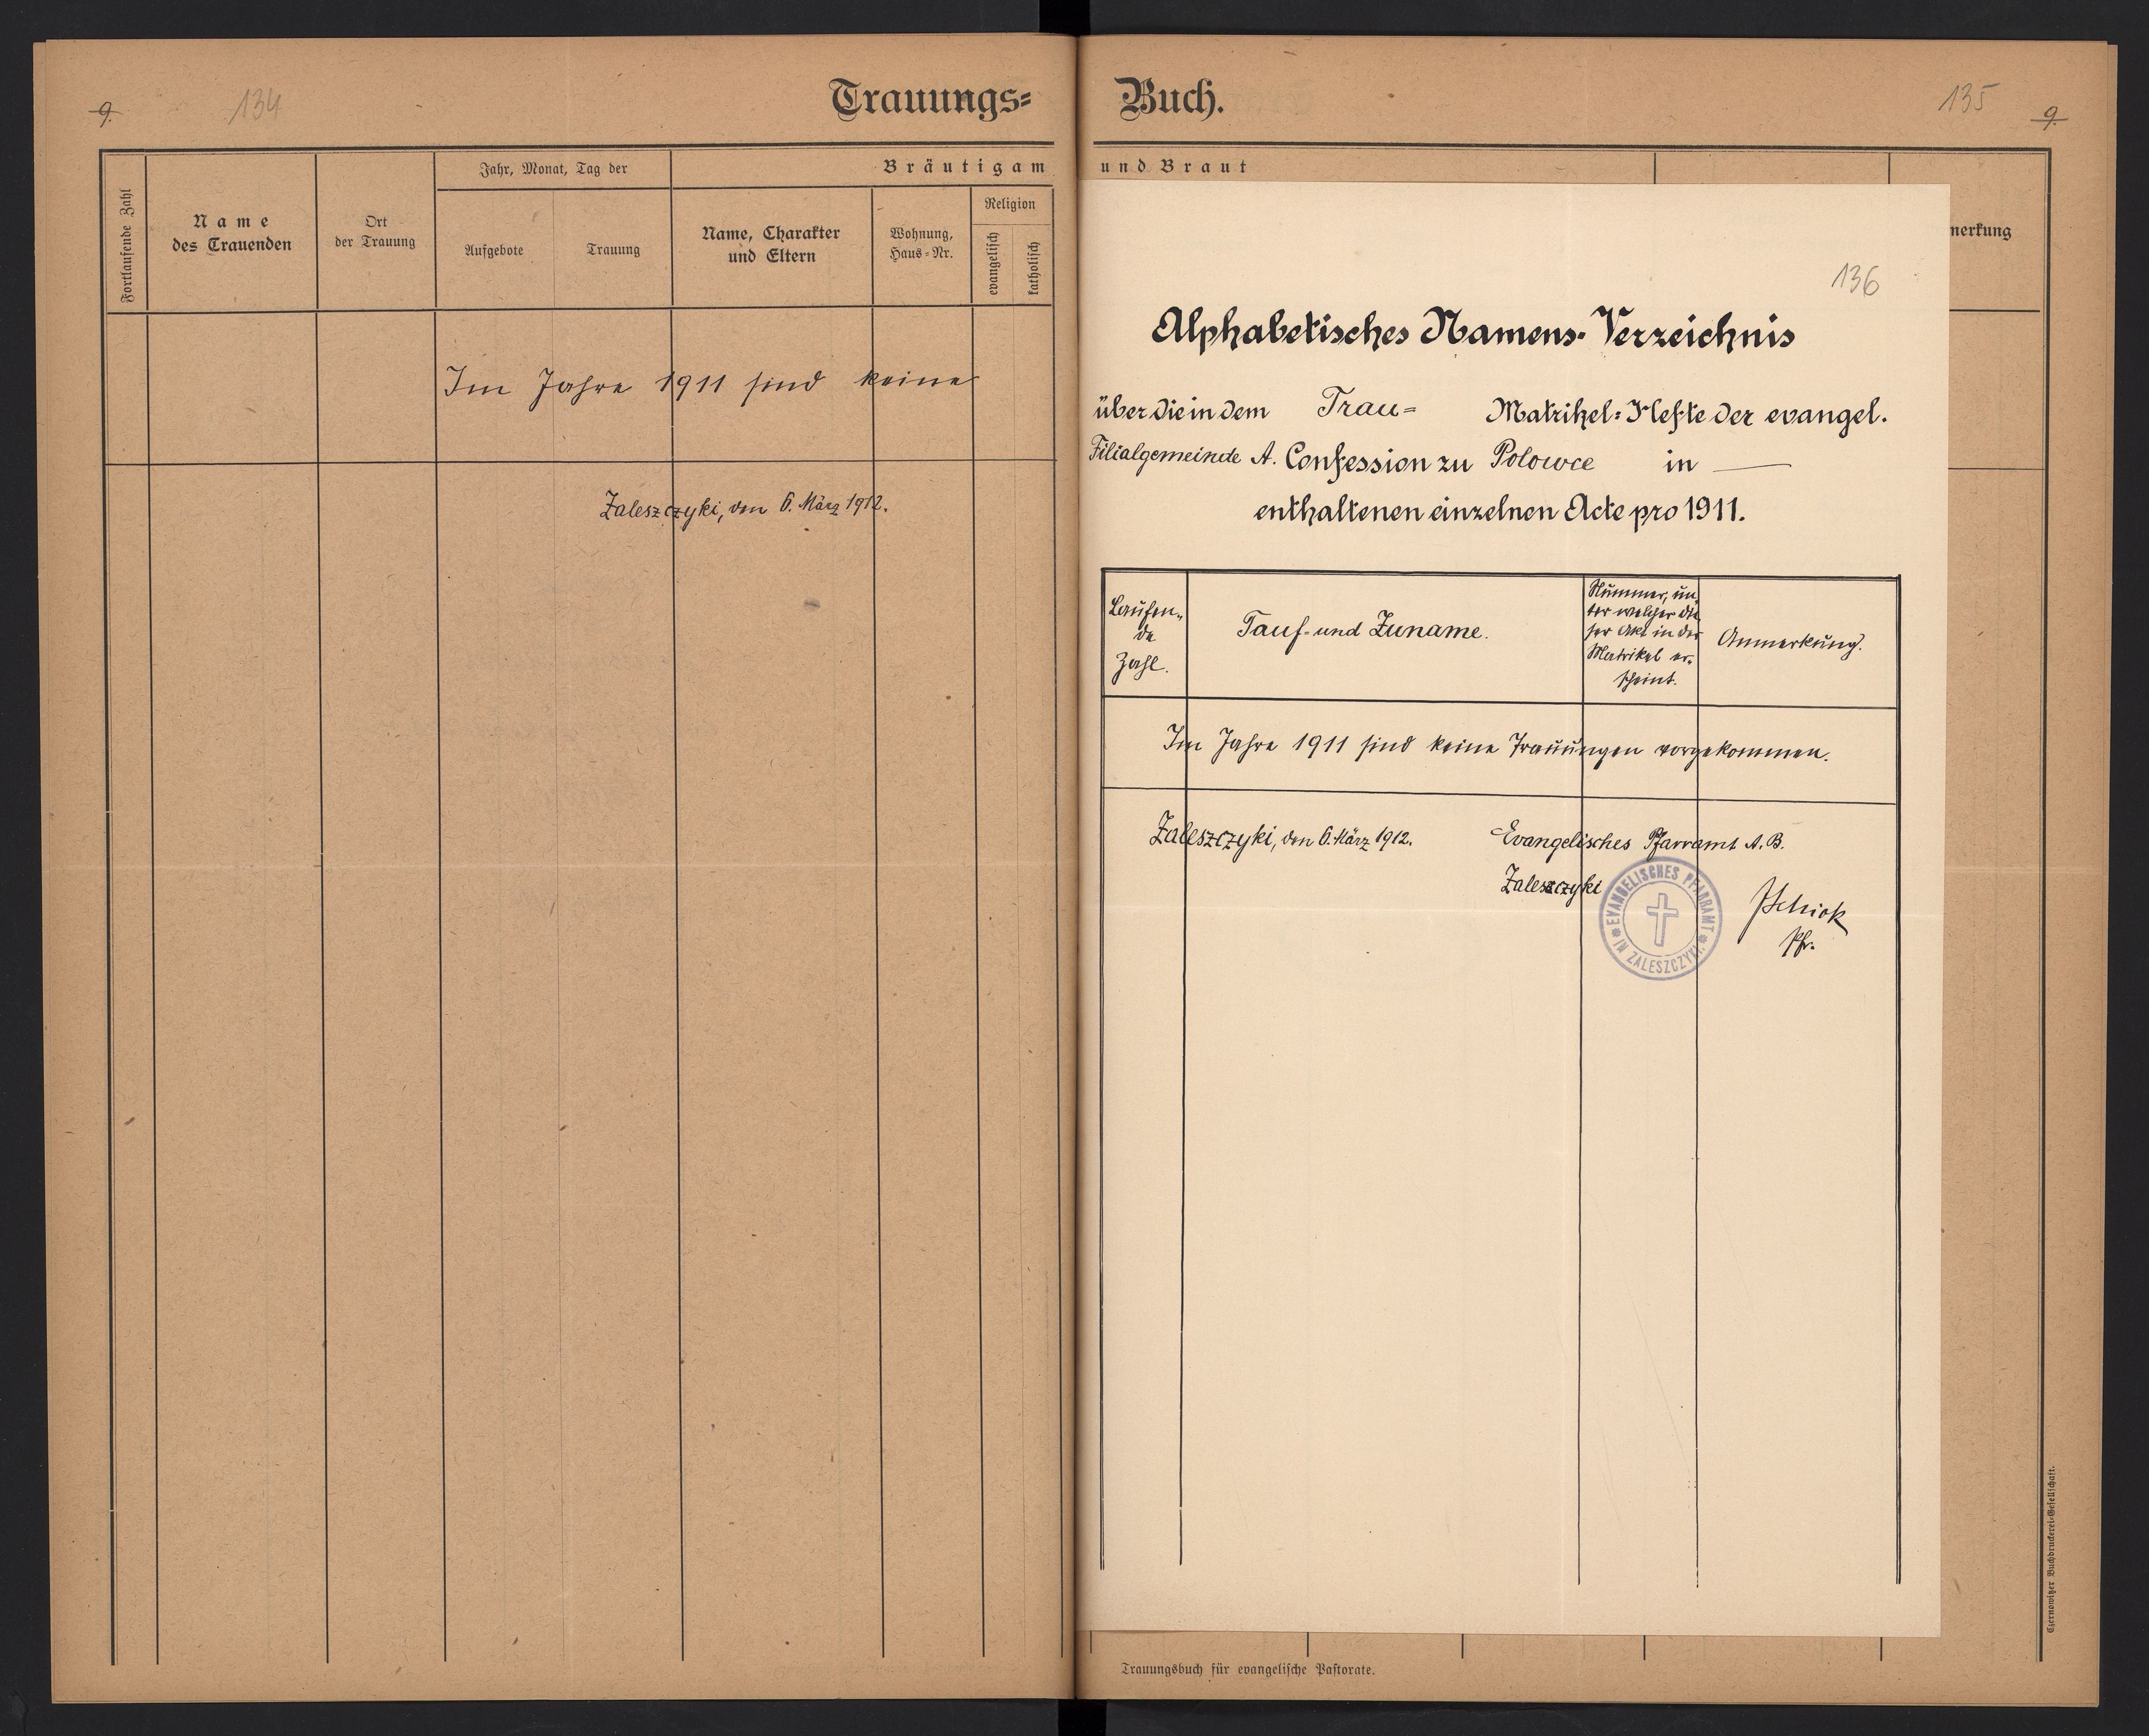 9. 134
Trauungs=
Fortlaufende Zahl
Name
des Trauenden
Ort
der Trauung
Jahr, Monat, Tag der
Aufgebote
Trauung
Bräutigam
Name, Charakter
und Eltern
Wohnung,
Haus=Nr.
Religion
evangelisch
katholisch
Im Jahre 1911 sind keine
Zaleszczyki, den 6. März 1912.
Buch.
135 9.
und Braut
merkung
136
Alphabetisches Namens-Verzeichnis
über die in dem Trau= Matrikel=Hefte der evangel.
Filialgemeinde A. Confession zu Polowce in —
enthaltenen einzelnen Acte pro 1911.
Laufen-
de
Zahl.
Tauf- und Zuname.
Nummer, un-
ter welcher die-
ser Akt in der
Matrikel er-
scheint.
Anmerkung.
Im Jahre 1911 sind keine Trauungen vorgekommen.
Zaleszczyki, den 6. März 1912.
Evangelisches Pfarramt A. B.
Zaleszczyki
EVANGELISCHES PFARRAMT
IN ZALESZCZYKI
Pfr.
Trauungsbuch für evangelische Pastorate.
Czernowitzer Buchdruckerei-Gesellschaft.